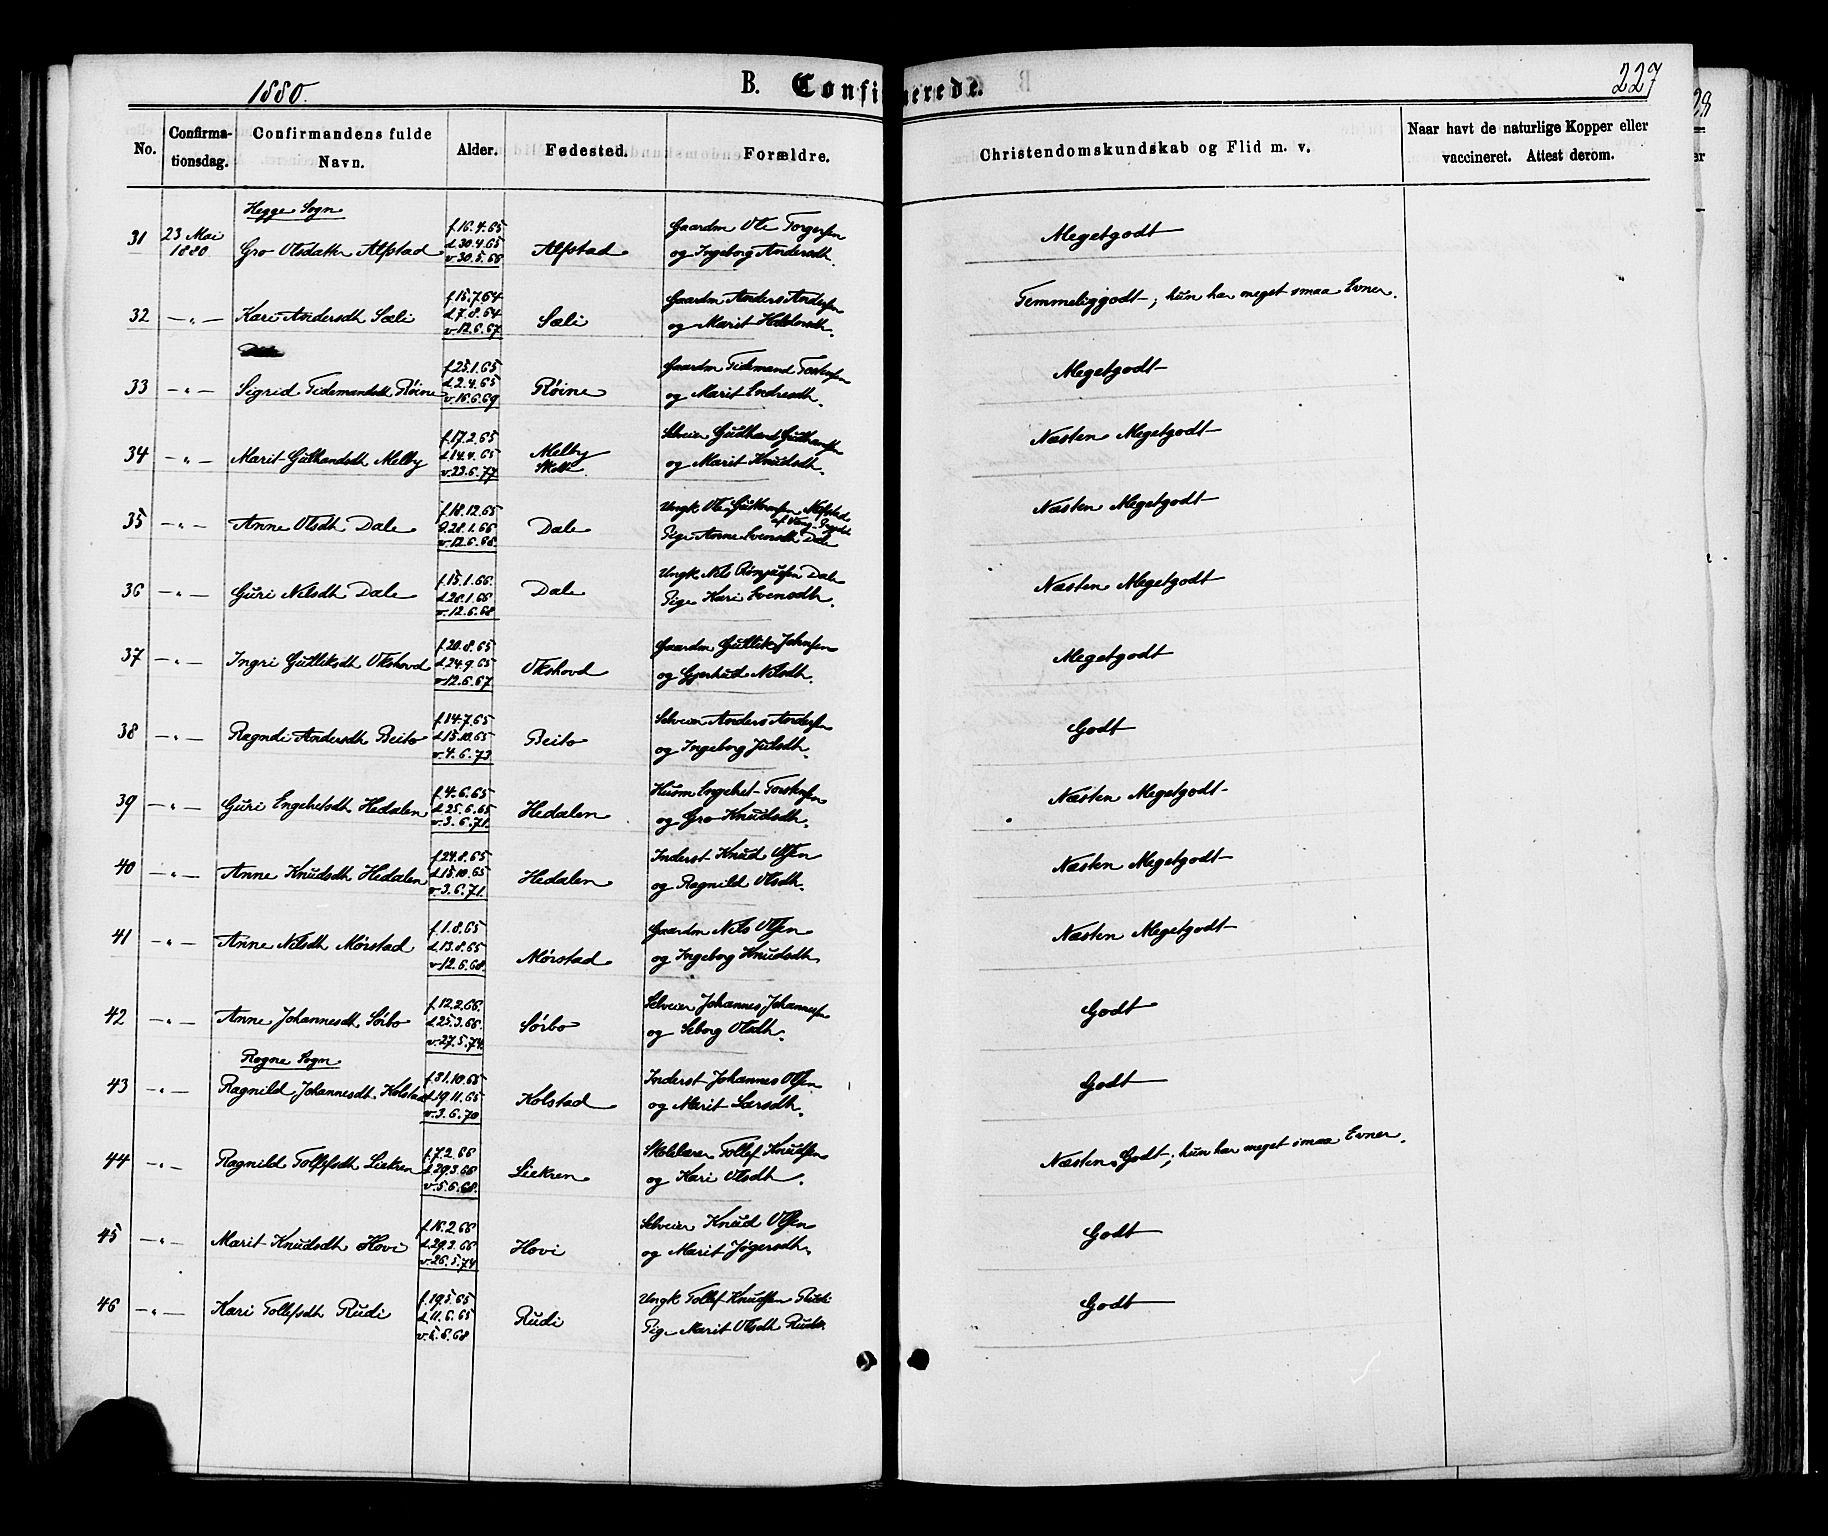 1880.
B. Confirmerede.
227
No.
Confirma-
tionsdag.
Confirmandens fulde
Navn.
Alder.
Fødested.
Forældre.
Christendomskundskab og Flid m. v.
Naar havt de naturlige Kopper eller
vaccineret. Attest derom.
Hegge Sogn
31 23 Mai 1880 Gro Olsdatter Alfstad f.16.4.65 d.30.4.65 v.30.5.68 Alfstad Gaardm Ole Torgersen
og Ingeborg Andersdh. Megetgodt
32 -„- Kari Andersdh Sæli f.15.7.64 d.7.8.64 v.12.6.67 Sæli Gaardm Anders Andersen
og Marit Temmeliggodt; hun har meget smaa Evner.
33 -„- Sigrid Tidemandsdh Røine f.25.1.65 d.2.4.65 v.16.6.69 Røine Gaardm Tidemand Torstensen
og Marit Endresdh. Megetgodt
34 -„- Marit Gulbrandsdh Melby f.17.2.65 d.14.4.65 v.23.6.77 Melby Selveier
og Marit Knudsdh. Næsten Megetgodt
35 -„- Anne Olsdh Dale f.18.12.65 d.28.1.66 v.12.6.68 Dale Ungk Ole
Pige Anne Svensdh Dale Næsten Megetgodt
36 -„- Guri Nilsdh Dale f.15.1.66. d.28.1.66 v.12.6.68 Dale Ungk Nils Dale
Pige Kari Svensdh. Næsten Megetgodt
37 -„- Ingri Gulliksdh Okshovd f.20.8.65 d.24.9.65 v.12.6.67 Okshovd Gaardm Gullik Johnsen
og Gjertrud Nilsdh. Megetgodt
38 -„- Ragndi Andersdh Beito f.14.7.65 d.15.10.65 v.4.6.73 Beito Selveier Anders Andersen
og Ingeborg Julsdh. Godt
39 -„- Guri Engebretsdh Hedalen f.4.6.65 d.25.6.65 v.3.6.71. Hedalen Husm Engebret Torstensen
og Gro Knudsdh. Næsten Megetgodt
40 -„- Anne Knudsdh Hedalen f.24.8.65 d.15.10.65 v.3.6.71. Hedalen Inderst Knud Olsen
og Ragnild Olsdh. Næsten Megetgodt
41 -„- Anne Nilsdh Mørstad f.1.8.65 d.13.8.65 v.12.6.68. Mørstad Gaardm Nils Olsen
og Ingeborg Knudsdh. Næsten Megetgodt
42 -„- Anne Johannesdh Sørbo f.12.2.66. d.25.3.66. v.27.5.74. Sørbo Selveier Johannes Johannesen
og Siborg Olsdh. Godt
Rogne Sogn
43 -„- Ragnild Johannesdh. Kolstad f.31.10.65 d.19.11.65 v.3.6.70 Kolstad Inderst Johannes Olsen
og Marit Larsdh. Godt
44 -„- Ragnild Tollefsdh Liekren f.7.2.66 d.29.3.66 v.5.6.68. Liekren Skolelærer Tollef Knudsen
og Kari Olsdh. Næsten Godt; hun har meget smaa Evner.
45 -„- Marit Knudsdh Hovi f.16.2.66 d.29.3.66 v.26.5.74 Hovi Selveier Knud Olsen
og Marit Jøgersdh. Godt
46 -„- Kari Tollefsdh Rudi f.19.5.65 d.11.6.65 v.5.6.68 Rudi Ungk Tollef Knudsen Rudi
Pige Marit Olsdh Godt